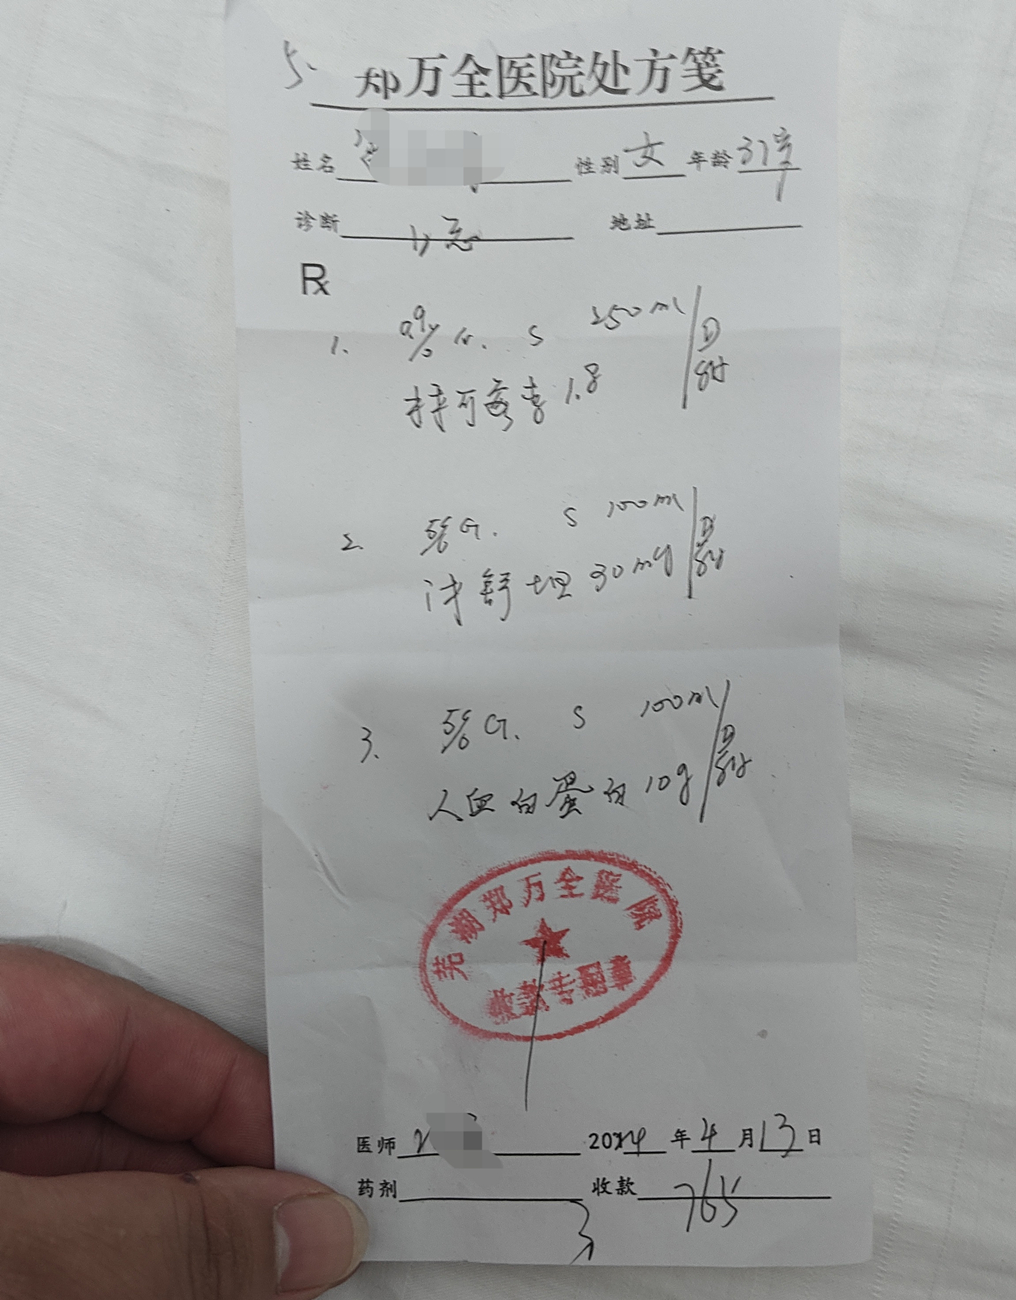 5.
郑万全医院处方笺
姓名 性别 女 年龄 37岁
诊断 地址
Rx
1. 0.9% N. S 250ml / D
1.8
2. 5% G. S 100ml / D
30mg
3. 5% G. S 100ml / D
人血白蛋白 10g
芜湖郑万全医院
收款专用章
医师 2024年4月13日
药剂 收款 765